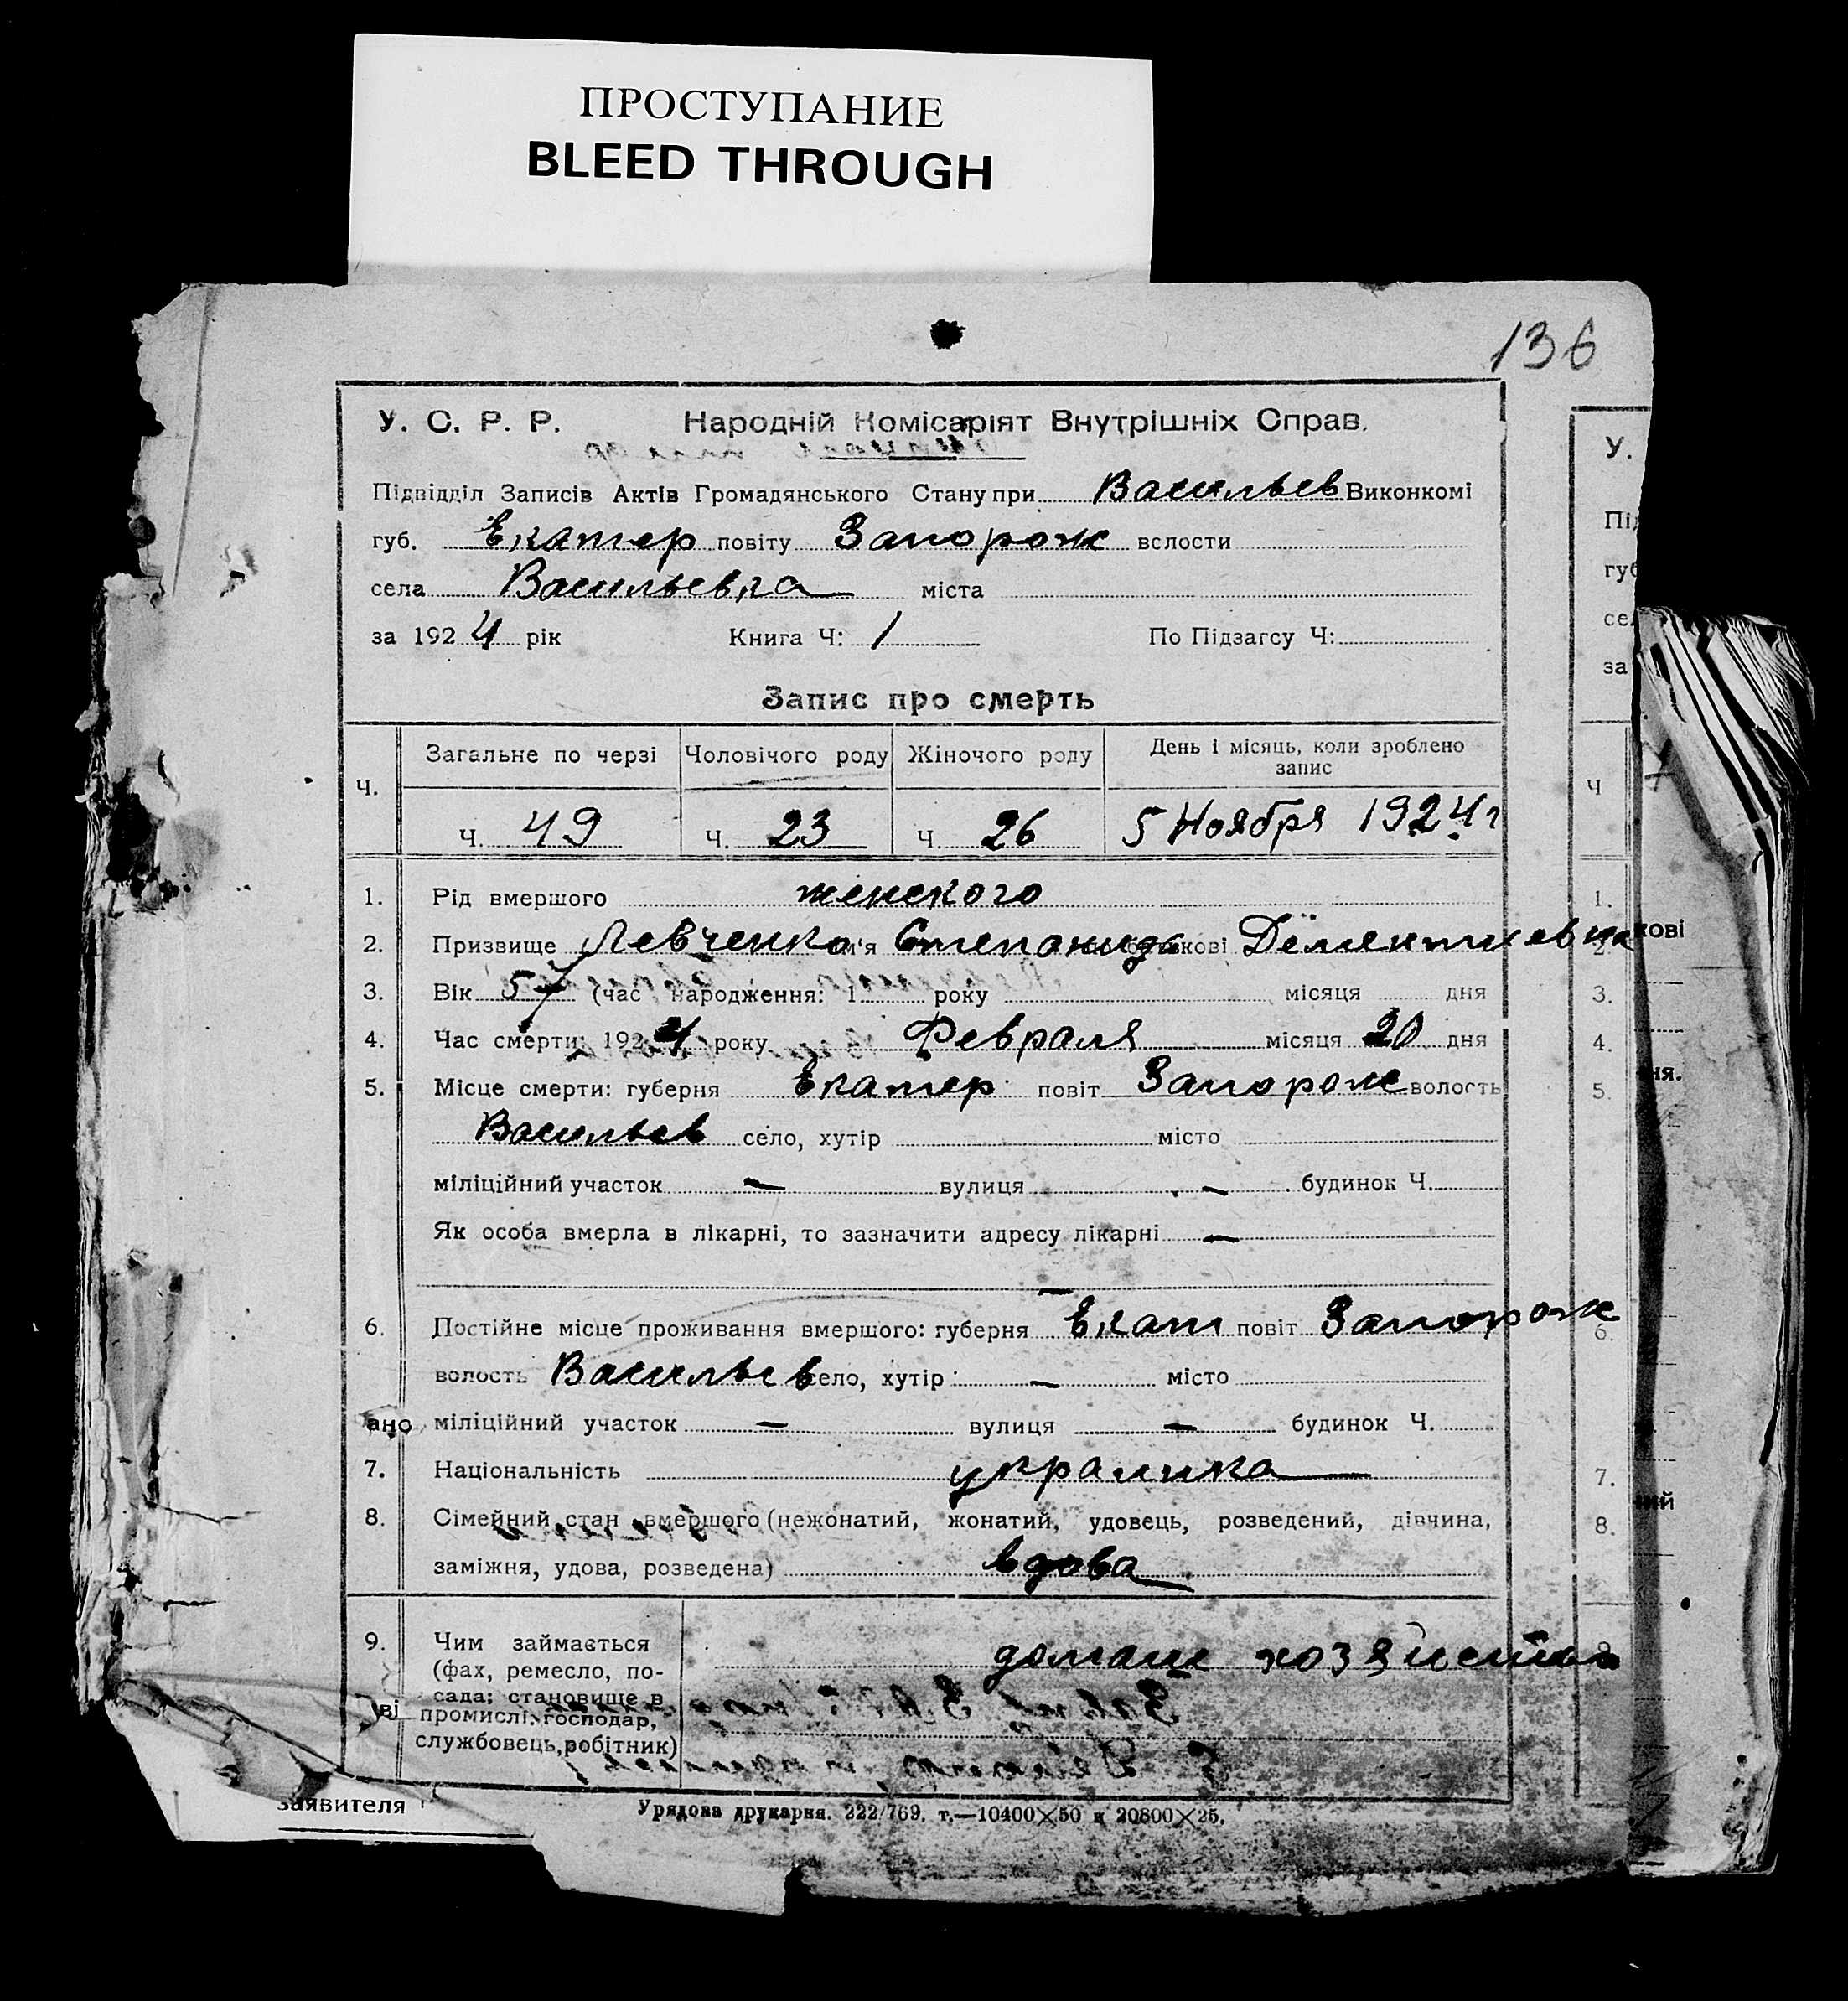 ПРОСТУПАНИЕ
BLEED THROUGH
136
У. С. Р. Р. Народній Комісаріят Внутрішніх Справ.
Підвідділ Записів Актів Громадянського Стану при Васильев Виконкомі
губ. Екатер повіту Запорож волости
села Васильевка міста
за 1924 рік Книга Ч: 1 По Підзагсу Ч:
Запис про смерть
Ч. Загальне по черзі Чоловічого роду Жіночого роду День і місяць, коли зроблено запис
Ч. 49 Ч. 23 Ч. 26 5 Ноября 1924 г
1. Рід вмершого женского
2. Призвище Левченко ім'я Степанида по батькові Дементиевна
3. Вік 57 (час народження: 1 року місяця дня
4. Час смерти: 1924 року Февраля місяця 20 дня
5. Місце смерти: губерня Екатер повіт Запорож волость
Васильев село, хутір місто
міліційний участок — вулиця — будинок Ч.
Як особа вмерла в лікарні, то зазначити адресу лікарні —
—
6. Постійне місце проживання вмершого: губерня Екат повіт Запорож
волость Васильев село, хутір — місто
ано міліційний участок — вулиця — будинок Ч.
7. Національність украинка
8. Сімейний стан вмершого (нежонатий, жонатий, удовець, розведений, дівчина,
заміжня, удова, розведена) вдова
9. Чим займається домаш хозяйством
(фах, ремесло, по-
сада; становище в
ві промислі: господар,
службовець, робітник)
заявителя
Урядова друкарня. 222/769. т.—10400×50 и 20800×25.
У.
Під
губ
сел
за
Ч
1.
2. кові
3.
4.
5. ня.
6.
7.
ний
8.
9.